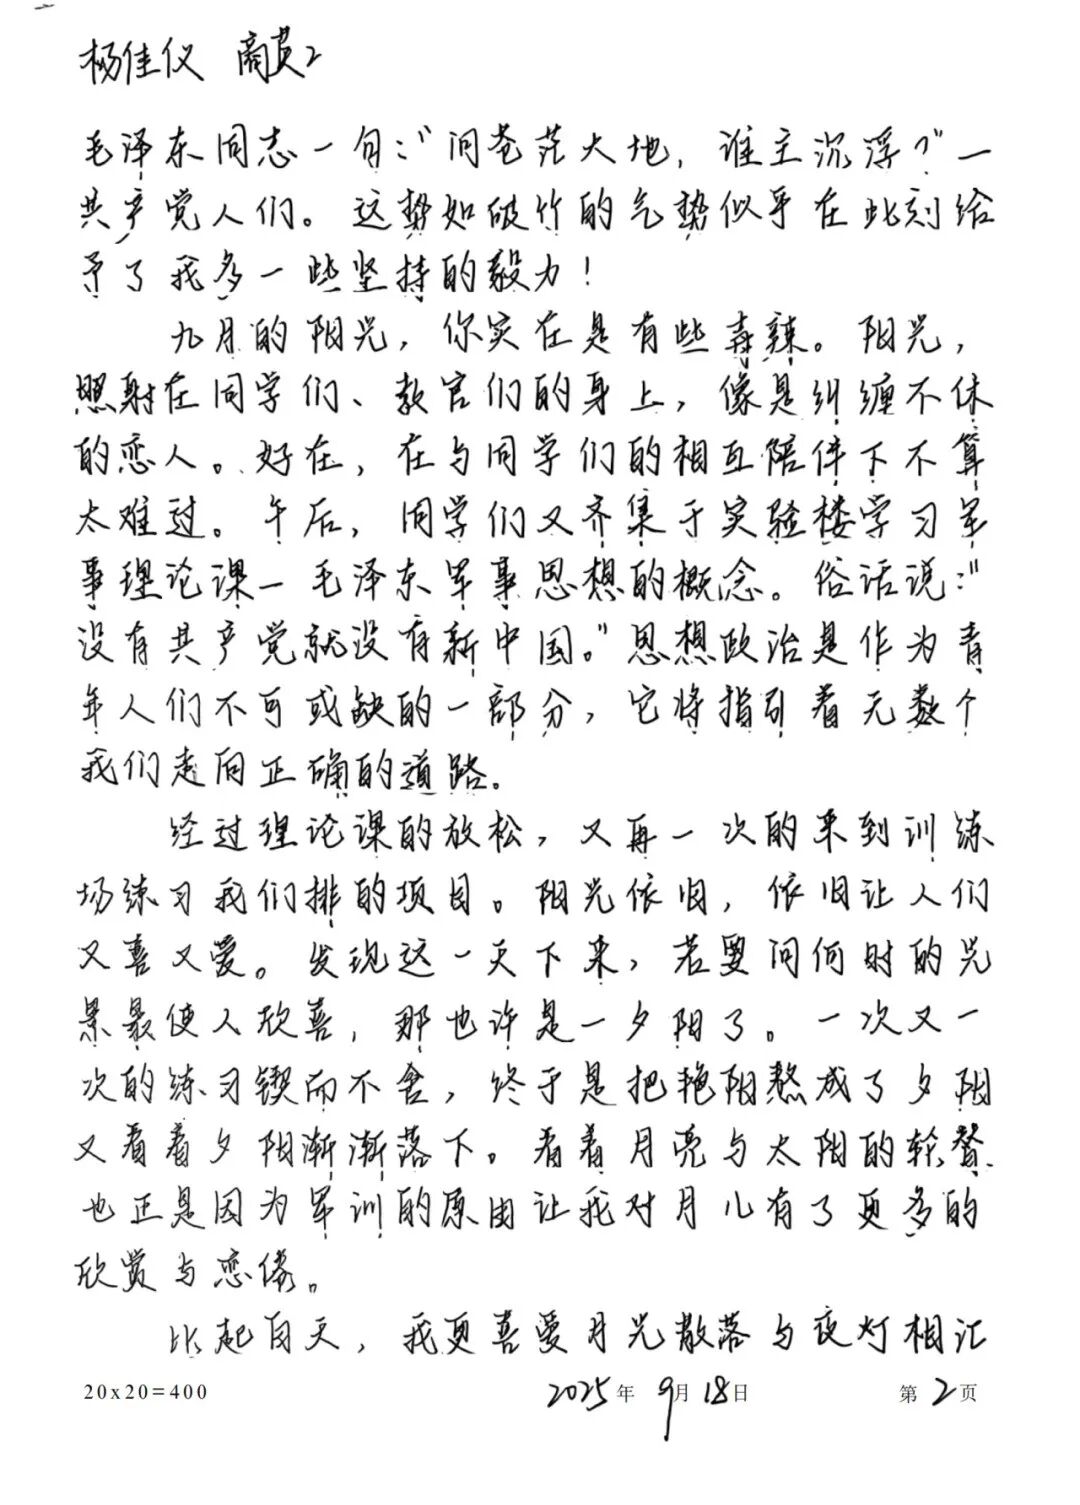 杨佳仪 商英2
毛泽东同志一句："问苍茫大地，谁主沉浮？"一
共产党人们。这势如破竹的气势似乎在此刻给
予了我多一些坚持的毅力！
九月的阳光，你实在是有些毒辣。阳光，
照射在同学们、教官们的身上，像是纠缠不休
的恋人。好在，在与同学们的相互陪伴下不算
太难过。午后，同学们又齐集于实验楼学习军
事理论课—毛泽东军事思想的概念。俗话说："
没有共产党就没有新中国。"思想政治是作为青
年人们不可或缺的一部分，它将指引着无数个
我们走向正确的道路。
经过理论课的放松，又再一次的来到训练
场练习我们排的项目。阳光依旧，依旧让人们
又喜又爱。发现这一天下来，若要问何时的光
景最使人欣喜，那也许是一夕阳了。一次又一
次的练习锲而不舍，终于是把艳阳熬成了夕阳
又看着夕阳渐渐落下。看着月亮与太阳的轮替
也正是因为军训的原由让我对月儿有了更多的
欣赏与恋倦。
比起白天，我更喜爱月光散落与夜灯相汇
20x20=400 2025年 9月 18日 第2页